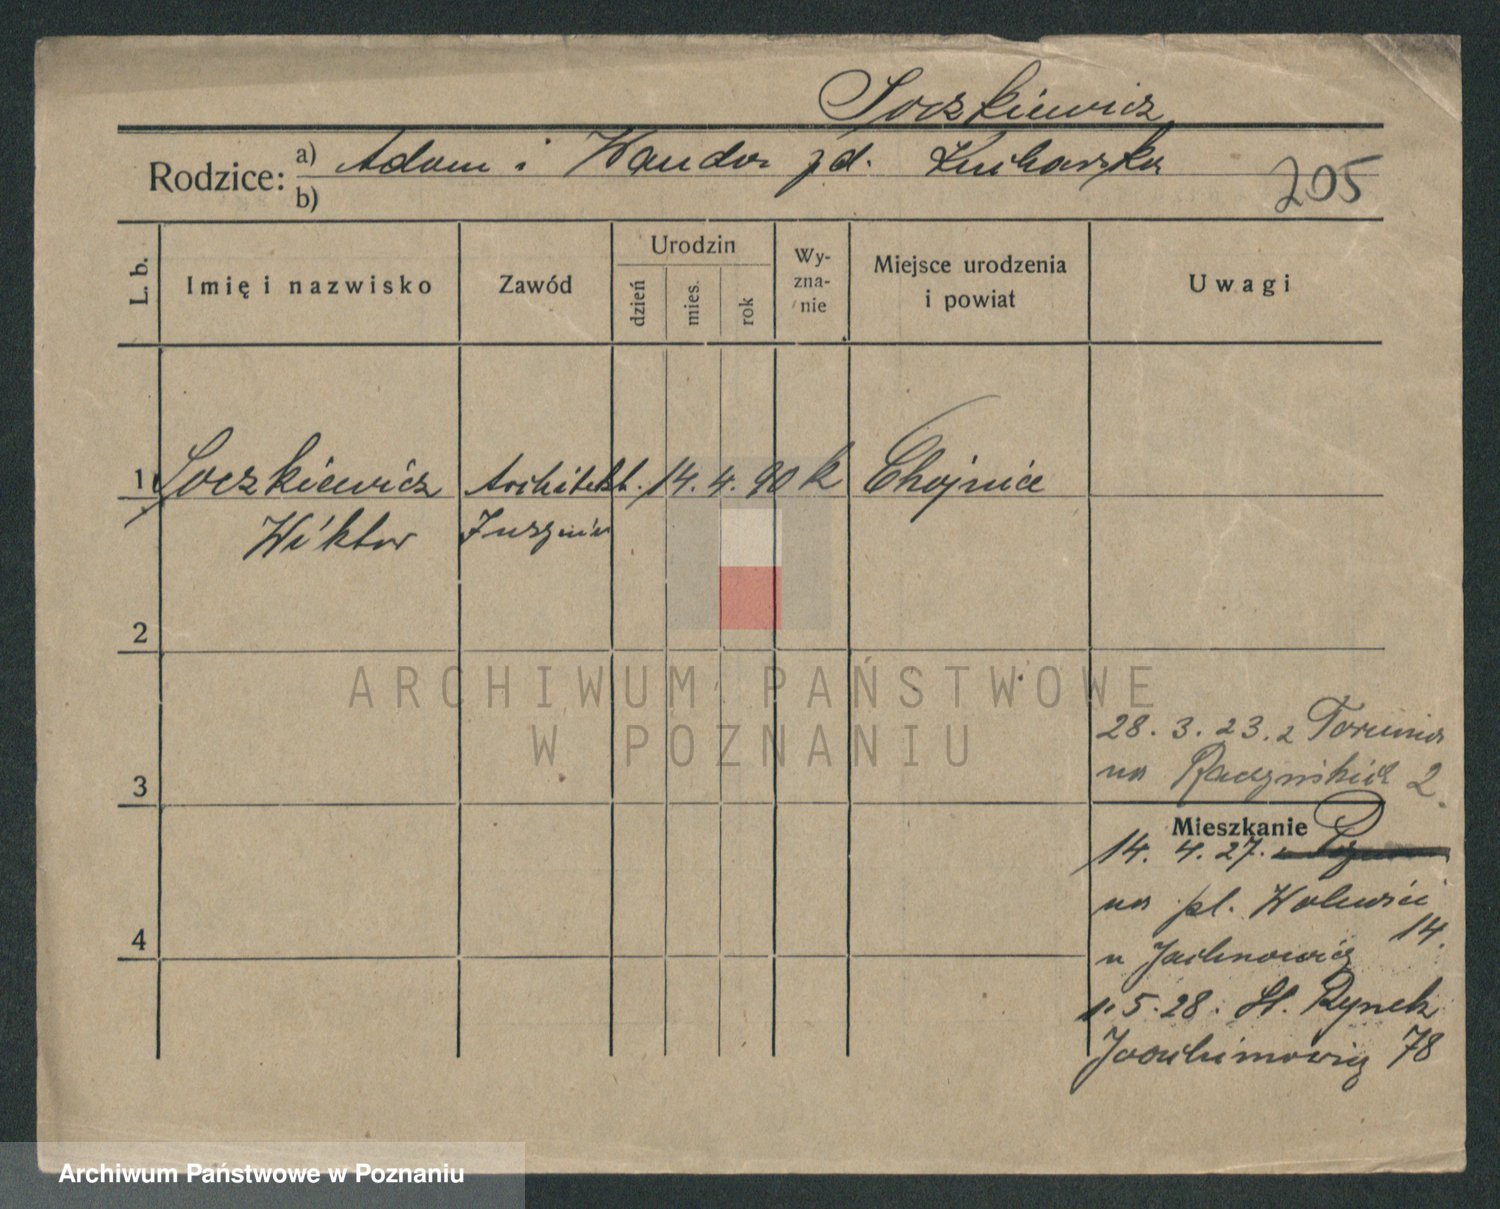 Soczkiewicz
Rodzice: a) Adam i Wanda zd. Kucharska
b)
205
L. b. Imię i nazwisko Zawód Urodzin dzień mies. rok Wy-zna-nie Miejsce urodzenia i powiat Uwagi
1 Soczkiewicz Architekt. 14. 4. 90 k Chojnice
Wiktor
2
ARCHIWUM PAŃSTWOWE
W POZNANIU
28. 3. 23. z Torunia
na 2.
3
Mieszkanie
14. 4. 27.
na pl. Wolności
14.
4
u Jachnowicz
1. 5. 28. St. Rynek
Joachimowicz 78
Archiwum Państwowe w Poznaniu